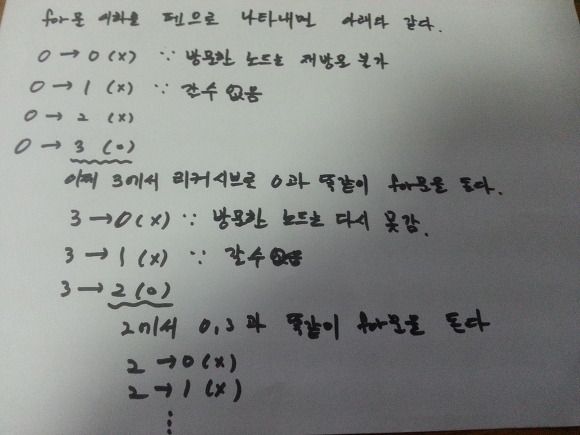 for문 이하를 펜으로 나타내면 아래와 같다.
0 → 0 (x) ∵ 방문한 노드는 재방문 불가
0 → 1 (x) ∵ 갈수 없음
0 → 2 (x)
0 → 3 (o)
이제 3에서 리커시브로 0과 똑같이 for문을 돈다.
3 → 0 (x) ∵ 방문한 노드는 다시 못감.
3 → 1 (x) ∵ 갈수 없음
3 → 2 (o)
2에서 0,3과 똑같이 for문을 돈다
2 → 0 (x)
2 → 1 (x)
⋮